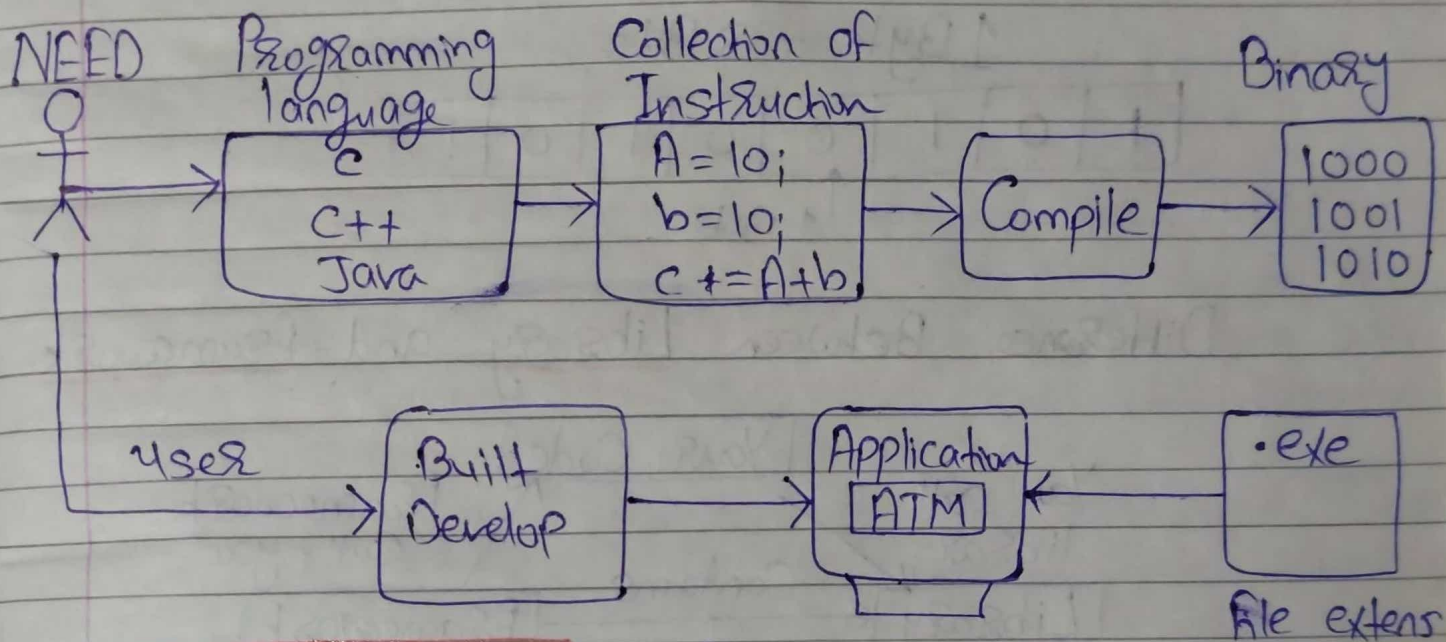 NEED
Programming
language
C
C++
Java
Collection of
Instruction
A = 10;
b = 10;
c += A+b
Compile
Binary
1000
1001
1010
user
Built
Develop
Application
ATM
.exe
file extens